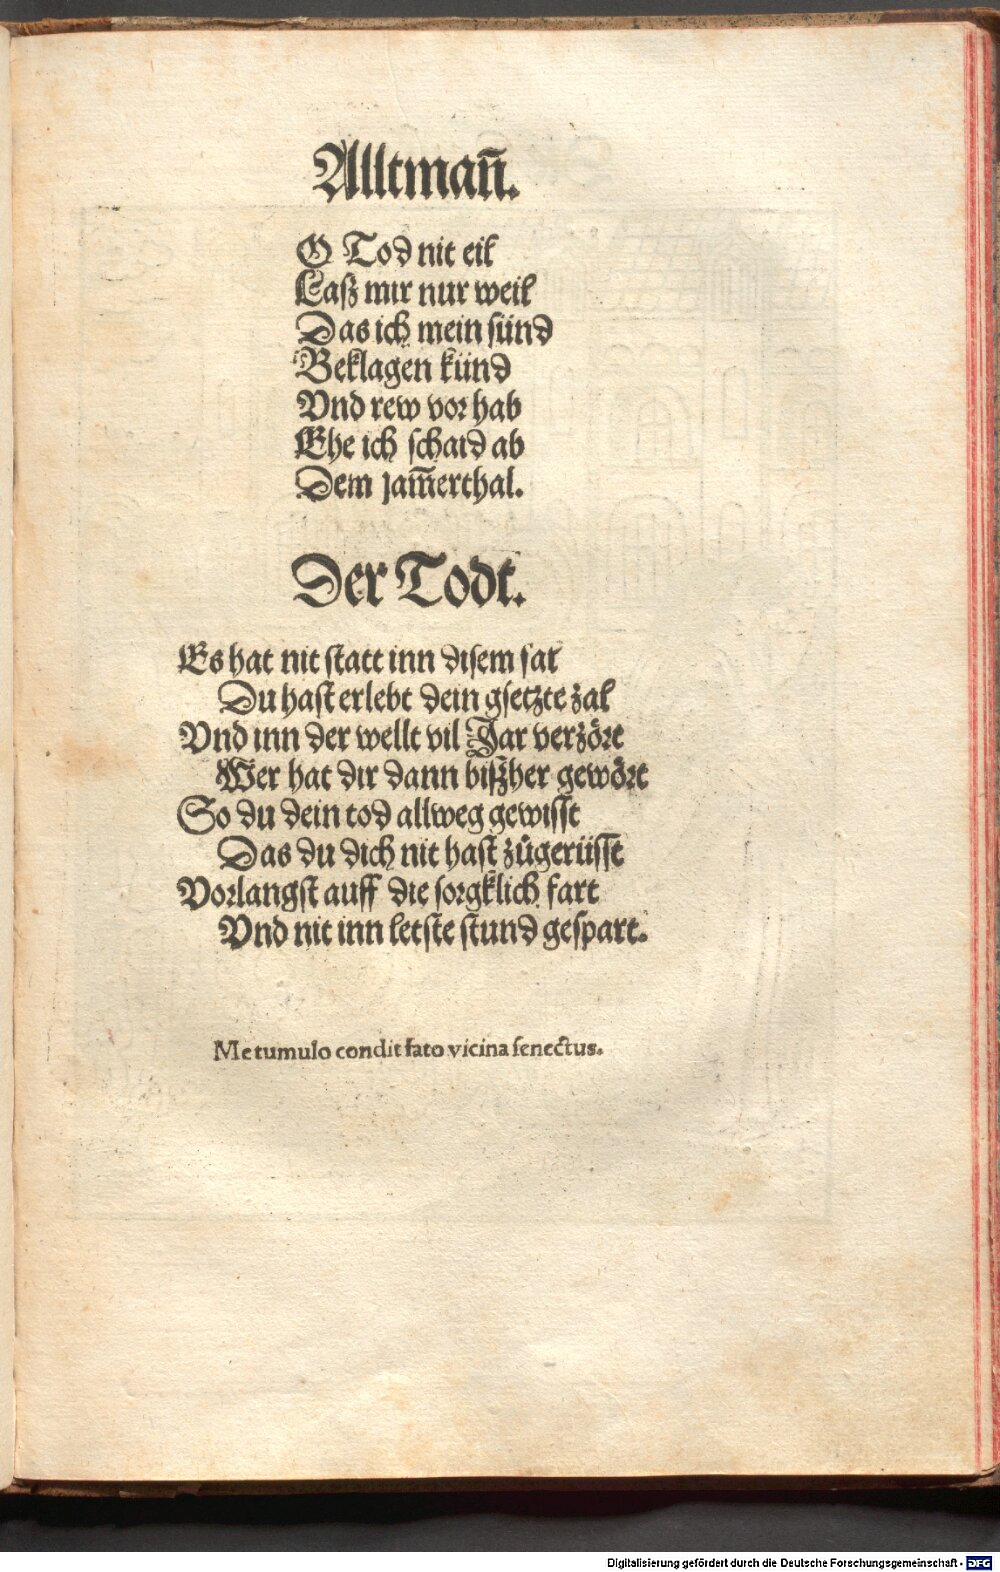 Alltmañ.
O Tod nit eil
Laſz mir nur weil
Das ich mein ſünd
Beklagen künd
Vnd rew vor hab
Ehe ich ſchaid ab
Dem jam̅erthal.
Der Todt.
Es hat nit ſtatt inn diſem fal
Du haſt erlebt dein gſetzte zal
Vnd inn der wellt vil Jar verzört
Wer hat dir dann biſzher gewört
So du dein tod allweg gewiſſt
Das du dich nit haſt zůgerüſſt
Vorlangſt auff die ſorgklich fart
Vnd nit inn letſte ſtund geſpart.
Me tumulo condit fato vicina ſenectus.
Digitalisierung gefördert durch die Deutsche Forschungsgemeinschaft - DFG